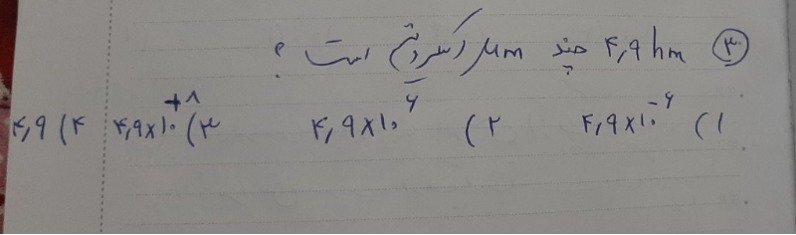 ③ ۴,۹ hm چند μm (میکرومتر) است ؟
۱) ۴,۹×۱۰^-۶ ۲) ۴,۹×۱۰^۶ ۳) ۴,۹×۱۰^+۸ ۴) ۴,۹